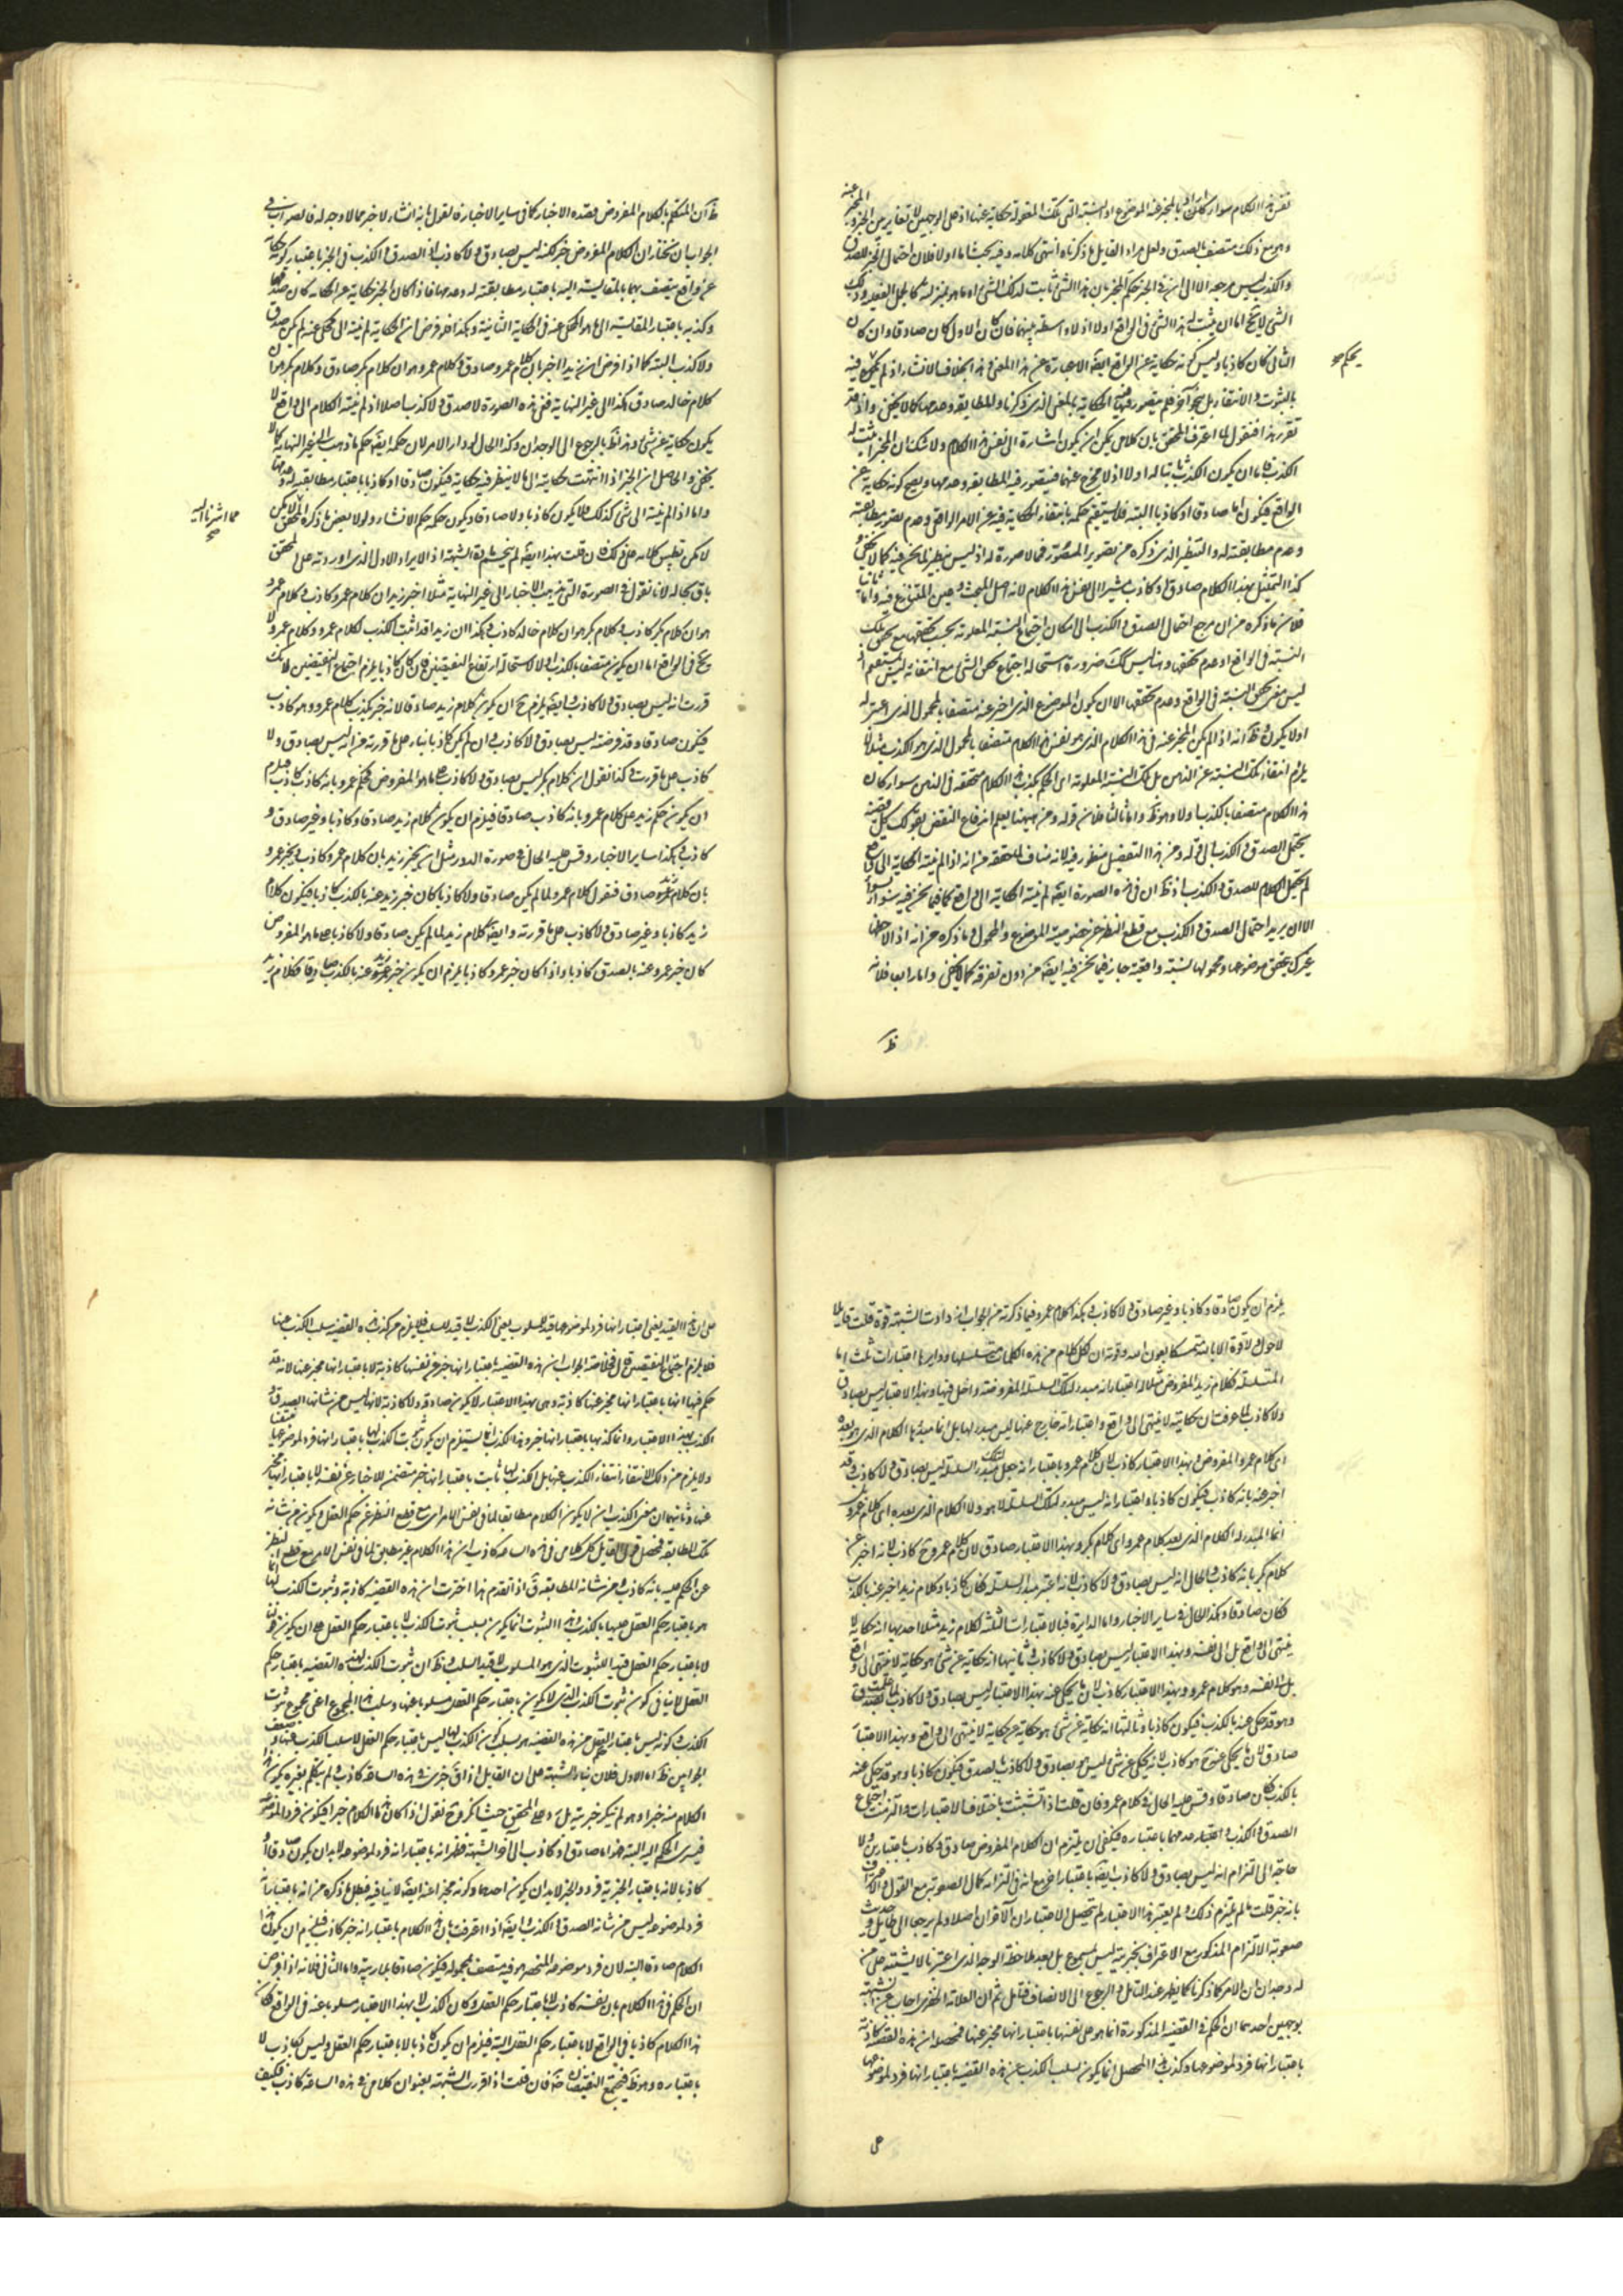 نفس هذا الكلام سواء كان المخبر عنه الموضوع او النسبة التي تلك المقولة حكاية عنها اذ على الوجهين لا تغاير بين الخبر و المخبر عنه
وهو مع ذلك متصف بالصدق ولعل مراد القايل ما ذكرناه انتهى كلامه وفيه بحث اما اولا فلان احتمال الخبر للصدق
والكذب ليس مرجعه الا الى ان في الخبر حكم المخبر بان هذا الشيء ثابت لذلك الشيء او ما هو بمنزلته
الشيء لا يخ اما ان يثبت له هذا الشيء في الواقع او لا اذ لا واسطة بينهما فان كان الاول كان صادقا وان كان
الثاني كان كاذبا وليس كونه حكاية عن الواقع ايضا الا عبارة عن هذا المعنى وهذا بخلاف الانشاء اذ لم يحكم فيه
يحكم صح
بالثبوت والانتفاء بل بنحو آخر فلم يتصور فيه الحكاية بالمعنى الذي ذكرنا والمطابقة وعدمها كما لا يخفى واذ قد
تقرر هذا فنقول لما اعترف المحقق بان كلامي يمكن ان يكون اشارة الى نفس هذا الكلام ولا شك ان المخبر اثبت له
الكذب فاما ان يكون الكذب ثابتا له اولا اذ لا مخرج عنهما فيتصور فيه المطابقة وعدمها ويصح كونه حكاية عن
الواقع فيكون اما صادقا او كاذبا البتة فلا يستقيم حكمه بانتفاء الحكاية فيه عن الامر الواقع وعدم تصور مطابقته
وعدم مطابقته له والتنظير الذي ذكره من تصوير المصور فمما لا صورة له اذ ليس بنظير لما نحن فيه كما لا يخفى و
كذا التمثيل بهذا الكلام صادق او كاذب مشيرا الى نفس هذا الكلام لانه اصل المبحث وعين المتنازع فيه واما ثانيا
فلان ما ذكره من ان مرجع احتمال الصدق والكذب الى امكان اجتماع النسبة المعلومة بحسب تحققها مع تحقق تلك
النسبة في الواقع او عدم تحققها وهنا ليس كك ضرورة استحالة اجتماع تحقق الشيء مع انتفائه ليس بمستقيم اذ
ليس معنى تحقق النسبة في الواقع وعدم تحققها الا ان يكون الموضوع الذي اخبر عنه متصفا بالمحمول الذي اعتبر له
اولا يكون وظ انه اذا لم يكن المخبر عنه في هذا الكلام الذي هو نفس هذا الكلام متصفا بالمحمول الذي هو الكذب مثلا لا
يلزم انتفاء تلك النسبة عن الذهن بل تلك النسبة المعلومة اي الحكم بكذب هذا الكلام متحققة في الذهن سواء كان
هذا الكلام متصفا بالكذب اولا وهو ظ واما ثالثا فلان قوله ومن هيهنا يعلم اندفاع النقض بقولك كل قضية
يحتمل الصدق والكذب الى قوله ومن هذا التفصيل منظور فيه لانه مناف لما حققه من انه اذا لم ينته الحكاية الى الواقع
لم يحتمل الكلام للصدق والكذب اذ ظ ان في هذه الصورة ايضا لم ينته الحكاية الى الواقع كما فيما نحن فيه سواء
الا ان يريد احتمال الصدق والكذب مع قطع النظر عن خصوصية الموضوع والمحمول وما ذكره من انه اذ الاحظها
عرك تحقق موضوعها ومحمولها لنسبة واقعية جاز فيما نحن فيه ايضا من دون تفرقة كما لا يخفى واما رابعا فلانه
ظ
ظ ان المتكلم بالكلام المفروض يقصد الاخبار كما في ساير الاخبار فالقول بانه انشاء لا خبر مما لا وجه له فالصواب في
الجواب ان نختار ان الكلام المفروض خبر لكنه ليس بصادق ولا كاذب اذ الصدق والكذب في الخبر باعتبار كونه حكاية
عن واقع يتصف بهما بالمقايسة اليه باعتبار مطابقته له وعدمها فاذا كان الخبر حكاية عن الحكاية كان صدقها
وكذبه باعتبار المقايسة الى ما هو المحكي عنه في الحكاية الثانية وهكذا فلو فرض ان الحكاية لم ينته الى محكي عنه لم يكن صدق
ولا كذب البتة كما اذا فرض ان زيدا اخبر بان كلام عمرو صادق وكلام عمرو هو ان كلام بكر صادق وكلام بكر هو ان
كلام خالد صادق هكذا الى غير النهاية ففي هذه الصورة لا صدق ولا كذب اصلا اذ لم ينته الكلام الى واقع لا
يكون حكاية عن شيء وهو ظ بالرجوع الى الوجدان وكذا الحال لو دار الامر لان حكمه ايضا حكم ما ذهب الى غير النهاية كما لا
يخفى والحاصل ان الخبر اذا انتهت حكايته الى ما لا ينظر فيه حكاية فيكون صادقا او كاذبا باعتبار مطابقته له وعدمها
واما اذا لم ينته الى شيء كذلك فلا يكون كاذبا ولا صادقا ويكون حكمه حكم الانشاء ولولا بعض ما ذكره المحقق لامكن
مما اشرنا اليه صح
لا مكن تطبيق كلامه على ذلك فان قلت بهذا ايضا لم ينحسم مادة الشبهة اذ الايراد الاول الذي اوردته على المحقق
باق بحاله لانا نقول في الصورة التي يذهب الاخبار الى غير النهاية مثلا اخبر زيد ان كلام عمرو كاذب وكلام عمرو
هو ان كلام بكر كاذب وكلام بكر هو ان كلام خالد كاذب وهكذا ان زيدا قد اثبت الكذب لكلام عمرو وكلام عمرو لا
يخ في الواقع اما ان يكون متصفا بالكذب اولا لاستحالة ارتفاع النقيضين فان كان كاذبا يلزم اجتماع النقيضين لانك
قررت انه ليس بصادق ولا كاذب وايضا يلزم ح ان يكون كلام زيد صادقا لانه خبر بكذب كلام عمرو وهو كاذب
فيكون صادقا وقد فرضته ليس بصادق ولا كاذب وان لم يكن كاذبا بناء على ما قررته من انه ليس بصادق ولا
كاذب على ما قررت وكنا نقول ان كلام بكر ليس بصادق ولا كاذب على ما هو المفروض فحكم عمرو بانه كاذب كاذب فيلزم
ان يكون حكم زيد على كلام عمرو بانه كاذب صادقا فيلزم ان يكون كلام زيد صادقا وكاذبا وغير صادق و
كاذب وهكذا ساير الاخبار وقس عليه الحال في صورة الدور مثل ان يخبر زيد بان كلام عمرو كاذب ويخبر عمرو
بان كلام زيد صادق فنقول كلام عمرو لما لم يكن صادقا ولا كاذبا كان خبر زيد عنه بالكذب كاذبا فيكون كلام
زيد كاذبا وغير صادق ولا كاذب على ما قررته وايضا كلام زيد لما لم يكن صادقا ولا كاذبا على ما هو المفروض
كان خبر عمرو عنه بالصدق كاذبا واذا كان خبر عمرو كاذبا يلزم ان يكون خبر زيد عنه بالكذب صادقا فكلام زيد
يلزم ان يكون صادقا وكاذبا وغير صادق ولا كاذب وهكذا كلام عمرو فيما ذكرته من الجواب ازدادت الشبهة قوة قلت قايلا
لا حول ولا قوة الا بالله متمسكا بعون الله وقوته ان لكل كلام من هذه الكلمات متسلسلها ودايرها اعتبارات ثلث اما
المتسلسلة فكلام زيد المفروض مثلا له اعتبار انه مبدء لتلك السلسلة المفروضة وداخل فيها وبهذا الاعتبار ليس بصادق
ولا كاذب لما عرفت ان حكايته لا ينتهي الى واقع واعتبار انه خارج عنها ليس مبدء لها بل انما مبدؤها الكلام الذي هو بعده
اي كلام عمرو المفروض وبهذا الاعتبار كاذب لان كلام عمرو باعتبار انه جعل مبدء لتلك السلسلة ليس بصادق ولا كاذب وقد
اخبر عنه بانه كاذب فيكون كاذبا واعتبار انه ليس مبدء لتلك السلسلة لا هو ولا الكلام الذي بعده اي كلام عمرو بل
انما المبدء له الكلام الذي بعد كلام عمرو اي كلام بكر وبهذا الاعتبار صادق لان كلام عمرو ح كاذب لانه اخبر عن
كلام بكر بانه كاذب والحال انه ليس بصادق ولا كاذب لانه اعتبر مبدء السلسلة فكان كاذبا وكلام زيد اخبر عنه بالكذب
فكان صادقا وهكذا الحال في ساير الاخبار واما الدايرة فبالاعتبارات الثلثة لكلام زيد مثلا احدها انه حكاية لا
ينتهي الى واقع بل الى نفسه وبهذا الاعتبار ليس بصادق ولا كاذب وثانيها انه حكاية عن شيء هو حكاية لا ينتهي الى واقع
بل الى نفسه وهو كلام عمرو وبهذا الاعتبار كاذب لان ما يحكي عنه بهذا الاعتبار ليس بصادق ولا كاذب لما علمت
وهو قد حكى عنه بالكذب فيكون كاذبا وثالثها انه حكاية عن شيء هو حكاية عن حكاية لا ينتهي الى واقع وبهذا الاعتبار
صادق لان ما يحكي عنه ح هو كاذب لانه يحكي عن شيء ليس هو بصادق ولا كاذب بالصدق فيكون كاذبا وهو قد حكى عنه
بالكذب فكان صادقا وقس عليه الحال في كلام عمرو فان قلت اذا تشبثت باختلاف الاعتبارات والتزمت اجتماع
الصدق والكذب واعتبار عدمهما باعتباره فيكفي ان يلتزم ان الكلام المفروض صادق وكاذب باعتبارين ولا
حاجة الى التزام انه ليس بصادق ولا كاذب ايضا باعتبار آخر مع انه في التزامه كمال الصعوبة مع القول والاعتراف
بانه خبر قلت ما لم يلتزم ذلك ولم يعتبر هذا الاعتبار لم يتحصل الاعتباران الآخران اصلا ولم يرجعا الى طايل وحديث
صعوبة الالتزام المذكور مع الاعتراف بخبريته ليس بمسموع بل بعد ملاحظة الوجه الذي اعتبرنا لا يشتبه على من
له وجدان ان الامر كما ذكرنا كما يظهر عند التامل والرجوع الى الانصاف فتامل ثم ان العلامة الخفري اجاب عن الشبهة
بوجهين احدهما ان الحكم في القضية المذكورة انما هو على نفسها باعتبار انها مخبر عنها فمحصله ان هذه القضية كاذبة
باعتبار انها فرد لموضوعها وكذب هذا المحصل انما يكون بسلب الكذب عن هذه القضية باعتبار انها فرد لموضوعها
على
على ان هذا القيد يعني اعتبار انها فرد لموضوعها قيد للمسلوب يعني الكذب لا قيد للسلب فلا يلزم من كذب هذه القضية سلب الكذب عنها
فلا يلزم اجتماع النقيضين قال وخلاصة الجواب ان هذه القضية باعتبار انها خبر عن نفسها كاذبة لا باعتبار انها مخبر عنها لانه قد
حكم فيها انها باعتبار انها مخبر عنها كاذبة وهي بهذا الاعتبار لا يكون صادقة ولا كاذبة لانها ليس من شانها الصدق و
الكذب بهذا الاعتبار وانما كذبها باعتبار انها خبر وهذا الكذب انما يستلزم ان يكون ثبوت الكذب لها باعتبار انها فرد لموضوعها منتفيا
ولا يلزم من ذلك الانتفاء انتفاء الكذب عنها بل الكذب لها ثابت باعتبار انها خبر متضمن للاخبار عن نفسه لا باعتبار انها مخبر
عنها وثانيهما ان معنى الكذب ان لا يكون الكلام مطابقا لما في نفس الامر اي مع قطع النظر عن حكم العقل ويكون من شانه
تلك المطابقة فمحصل قول القايل كل كلامي في هذه الساعة كاذب ان هذا الكلام غير مطابق لما في نفس الامر مع قطع النظر
عن الحكم عليه بانه كاذب ومن شانه المطابقة ق اذا تقدم هذا اخترت ان هذه القضية كاذبة وثبوت الكذب لها انما
هو باعتبار حكم العقل عليها بالكذب وهذا الثبوت انما يكون بسلب ثبوت الكذب لا باعتبار حكم العقل على ان يكون قولنا
لا باعتبار حكم العقل قيدا للثبوت الذي هو المسلوب لا قيد السلب وظ ان ثبوت الكذب لهذه القضية باعتبار حكم
العقل لا ينافي كون ثبوت الكذب الذي لا يكون باعتبار حكم العقل مسلوبا عنها وسلب هذا المجموع اعني مجموع ثبوت
الكذب وكونه ليس باعتبار العقل عن هذه القضية هو بسلب كون الكذب لها ليس باعتبار حكم العقل لا سلب الكذب عنها وضعف
الجوابين ظ اما الاول فلان بناء الشبهة على ان القايل اذا ق خبري في هذه الساعة كاذب ولم يتكلم بغيره يكون
الكلام منه خبرا وهو لم ينكر خبريته بل رد على المحقق حيث انكره وح نقول اذا كان هذا الكلام خبرا فيكون فردا لموضوعه
فيسري الحكم اليه البتة فهو اما صادق او كاذب الى آخر الشبهة فظهر انه باعتبار انه فرد لموضوعه لابد ان يكون صادقا او
كاذبا لانه باعتبار الخبرية فرد والخبر لابد ان يكون احدهما وكونه مخبرا عنه ايضا لا ينافيه فبطل ما ذكره من انه باعتبار انه
فرد لموضوعه ليس من شانه الصدق والكذب وايضا اذا اعترفت بان هذا الكلام باعتبار انه خبر كاذب فيلزم ان يكون هذا
الكلام صادقا البتة لان فرد موضوعه المنحصر هو فيه متصف بمحموله فيكون صادقا بلا ريبة واما الثاني فلانه اذا فرض
ان الحكم في هذا الكلام بان نفسه كاذب لا باعتبار حكم العقل وكان الكذب لا بهذا الاعتبار مسلوبا عنه في الواقع فكان
هذا الكلام كاذبا في الواقع لا باعتبار حكم العقل البتة فيلزم ان يكون كاذبا لا باعتبار حكم العقل وليس بكاذب لا
باعتباره وهو ظ فيجتمع النقيضان فيه فان قلت اذا قررت الشبهة بعنوان كلامي في هذه الساعة كاذب فكيف